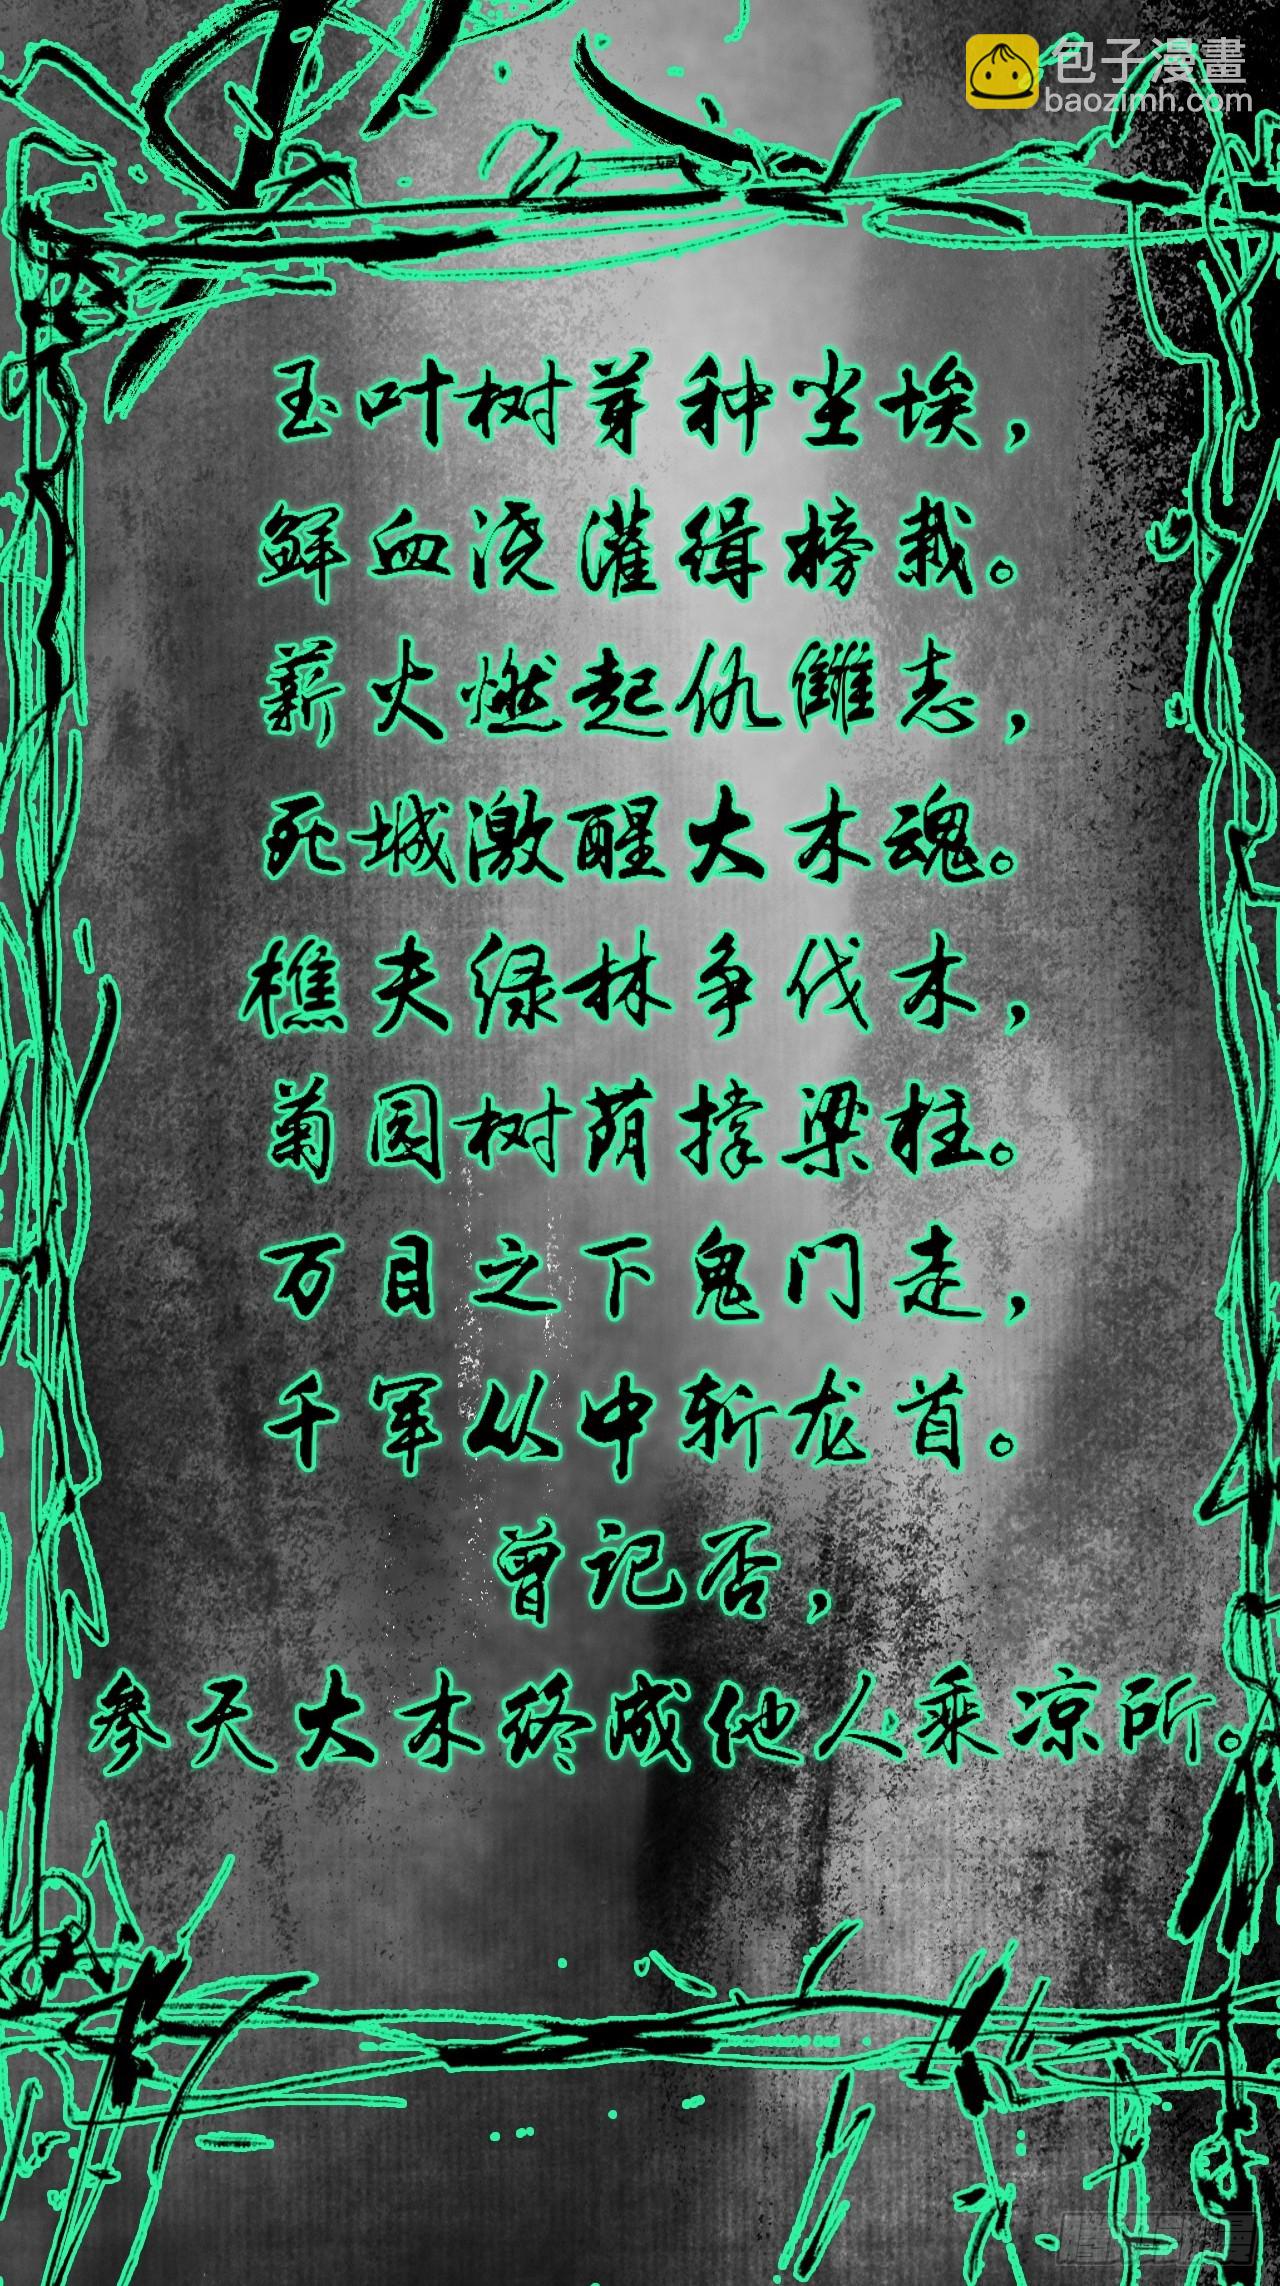 包子漫畫
baozimh.com
玉叶树芽种尘埃，
鲜血浇灌缉榜栽。
薪火燃起仇雠志，
死城激醒大木魂。
樵夫绿林争伐木，
菊园树荫撑梁柱。
万目之下鬼门走，
千军从中斩龙首。
曾记否，
参天大木终成他人乘凉所。
腾讯动漫